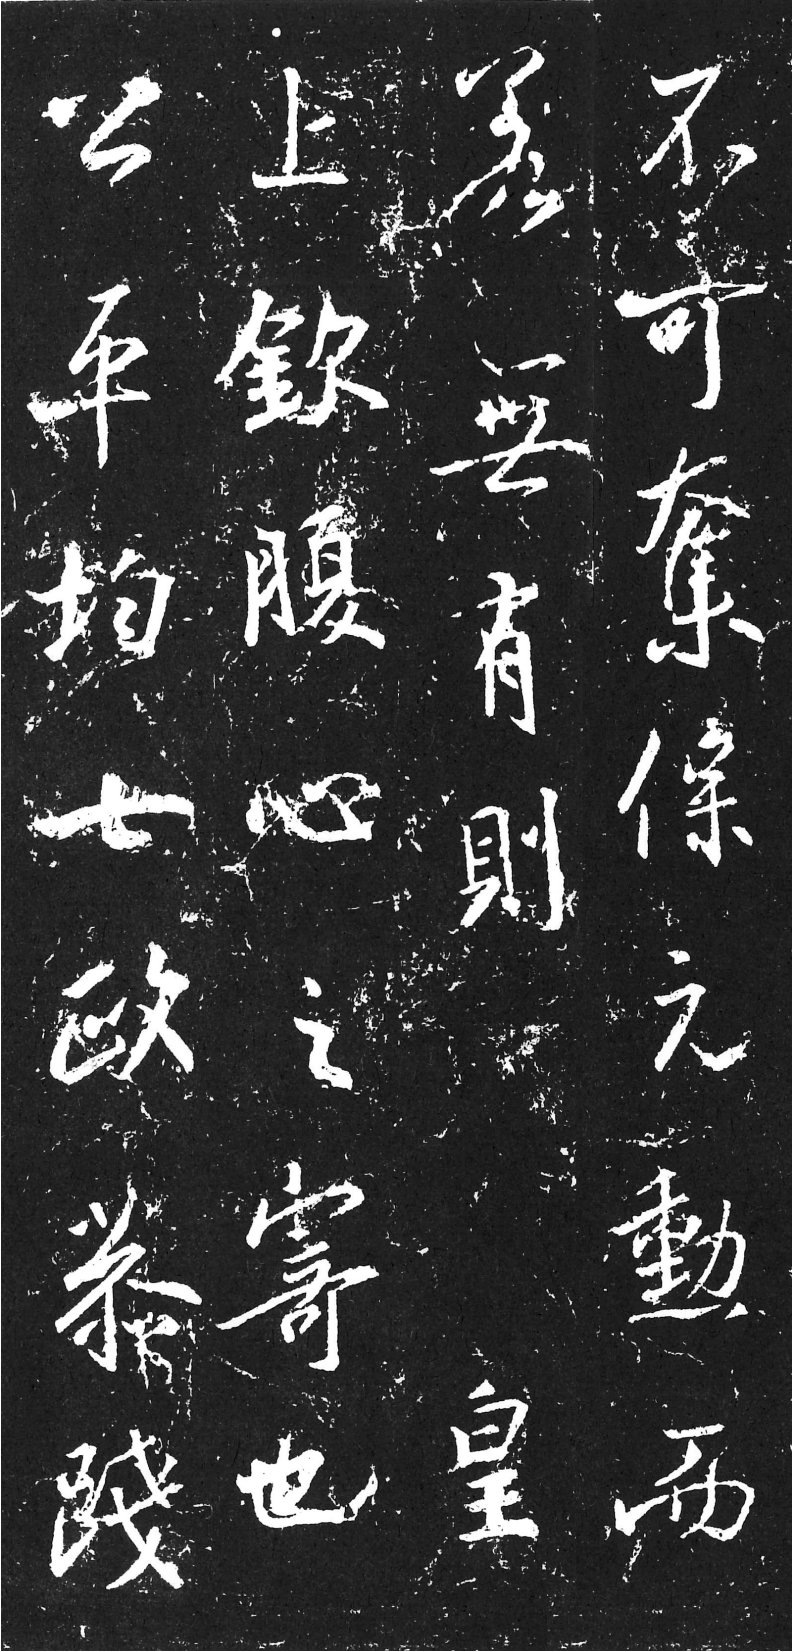 不可奪保元勳而
善無有則皇
上欽腹心之寄也
公平均七政恭踐